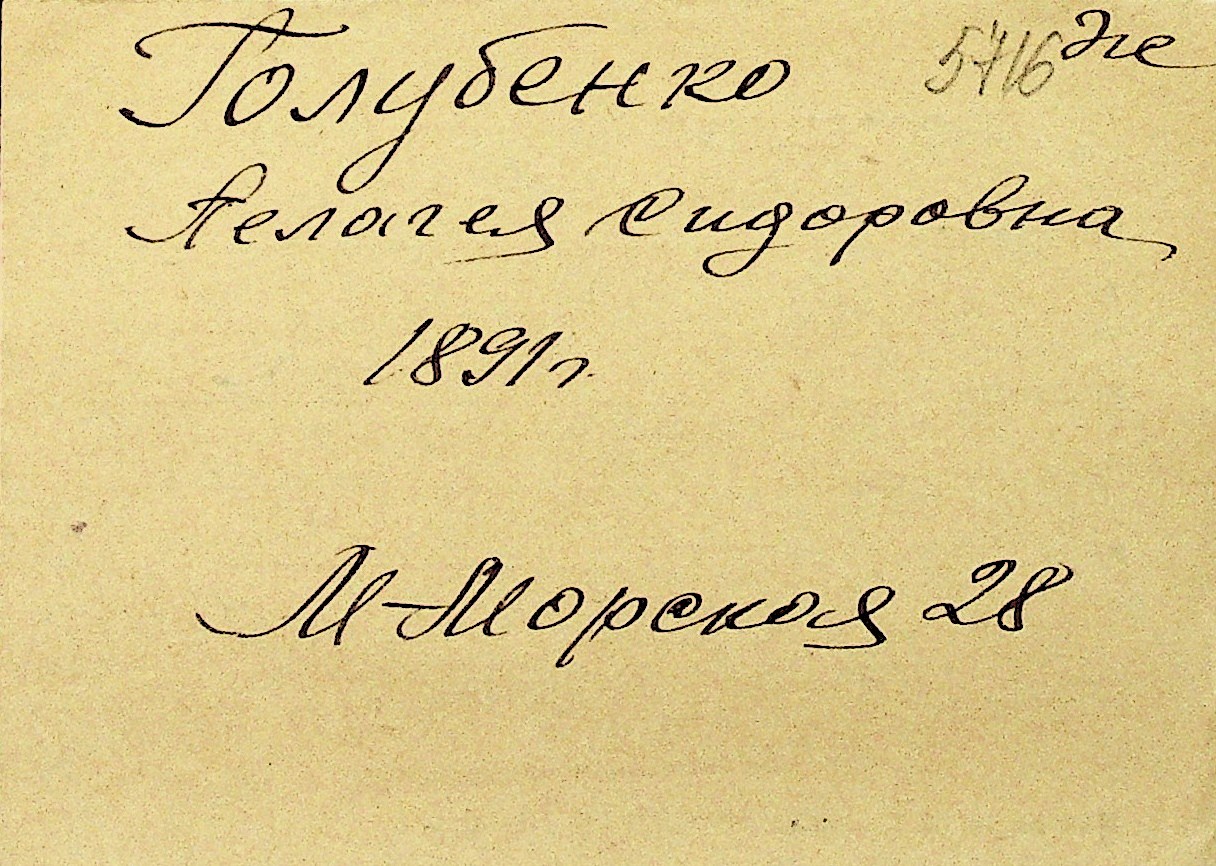 Голубенко 5716 Эе
Пелагея Сидоровна
1891 г
М-Морская 28